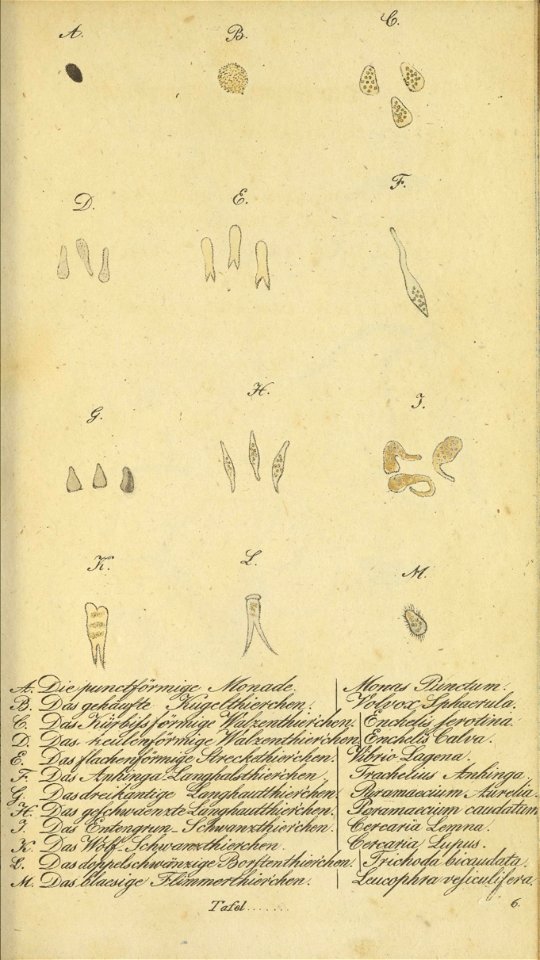 A.
B.
C.
D.
E.
F.
G.
H.
I.
K.
L.
M.
A. Die punctförmige Monade. Monas Punctum.
B. Das gehäufte Kugelthierchen. Volvox Sphaerula.
C. Das Kürbißförmige Walzenthierchen. Enchelis serotina.
D. Das keulenförmige Walzenthierchen. Enchelis Calva.
E. Das flachenförmige Streckthierchen. Vibrio Lagena.
F. Das Anhinga-Langhalsthierchen. Trachelius Anhinga.
G. Das dreikantige Langhautthierchen. Paramaecium Aurelia.
H. Das geschwänzte Langhautthierchen. Paramaecium caudatum.
I. Das Entengrün-Schwanzthierchen. Cercaria Lemna.
K. Das Wolf-Schwanzthierchen. Cercaria Lupus.
L. Das doppelschwänzige Borstenthierchen. Trichoda bicaudata.
M. Das blaesige Flimmerthierchen. Leucophra vesiculifera.
Tafel....... 6.